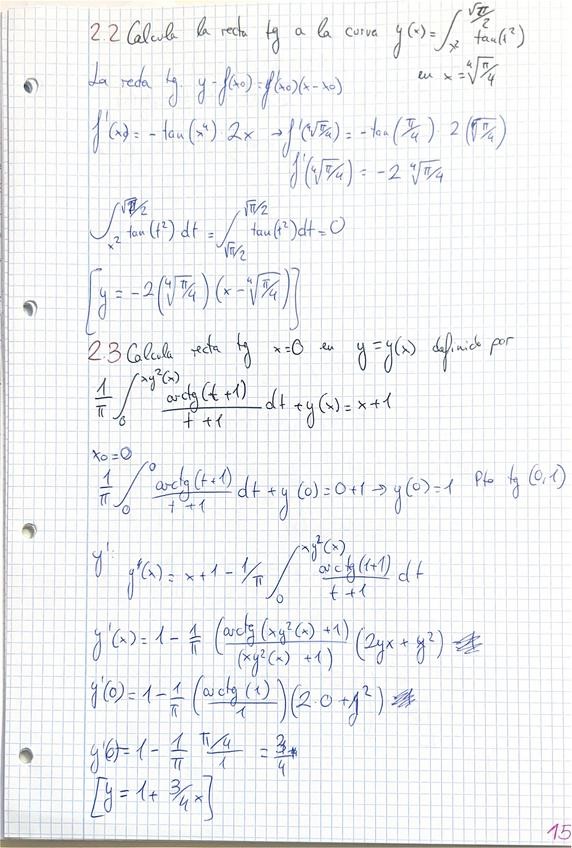 2.2 Calcula la recta tg a la curva y(x) = ∫_{x²}^{√π/2} tan(t²)
en x = ⁴√π/4
La recta tg. y - f(x0) = f'(x0)(x - x0)
f'(x) = -tan(x⁴) · 2x → f'(⁴√π/4) = -tan(π/4) · 2(⁴√π/4)
f'(⁴√π/4) = -2 ⁴√π/4
∫_{x²}^{√π/2} tan(t²) dt = ∫_{√π/2}^{√π/2} tan(t²) dt = 0
[y = -2(⁴√π/4)(x - ⁴√π/4)]
2.3 Calcula recta tg x=0 en y = y(x) definida por
1/π ∫_0^{xy²(x)} arctg(t+1)/(t+1) dt + y(x) = x+1
x0 = 0
1/π ∫_0^0 arctg(t+1)/(t+1) dt + y(0) = 0+1 → y(0) = 1 Pto tg (0,1)
y':
y'(x) = x+1 - 1/π ∫_0^{xy²(x)} arctg(1+1)/(t+1) dt
y'(x) = 1 - 1/π (arctg(xy²(x)+1)/(xy²(x)+1)) (2yx + y²)
y'(0) = 1 - 1/π (arctg(1)/1)(2·0 + y²)
y'(0) = 1 - 1/π · π/4/1 = 3/4
[y = 1 + 3/4 x]
15